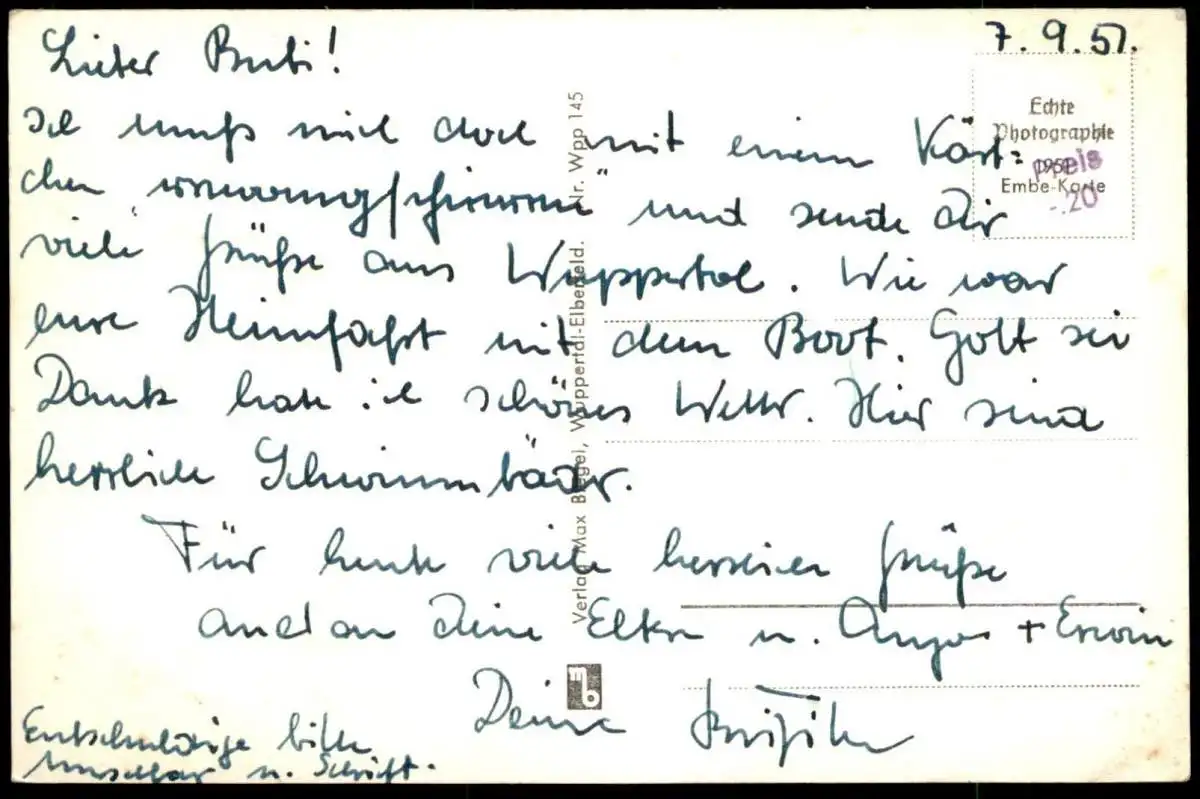 7. 9. 51.
Lieber Bubi!
Ich muß mich doch mit einem Kärt=
chen und sende Dir
viele Grüße aus Wuppertal. Wie war
eure Heimfahrt mit dem Boot. Gott sei
Dank habe ich schönes Wetter. Hier sind
herrliche Schwimmbäder.
Für heute viele herzlichen Grüße
auch an Deine Eltern u. Anya + Erwin
Deine
Entschuldige bitte
u. Schrift.
Echte
Photographie
1951
Embe-Karte
Preis
-.20
Verlag Max Biegel, Wuppertal-Elberfeld. Nr. Wpp 145
mb